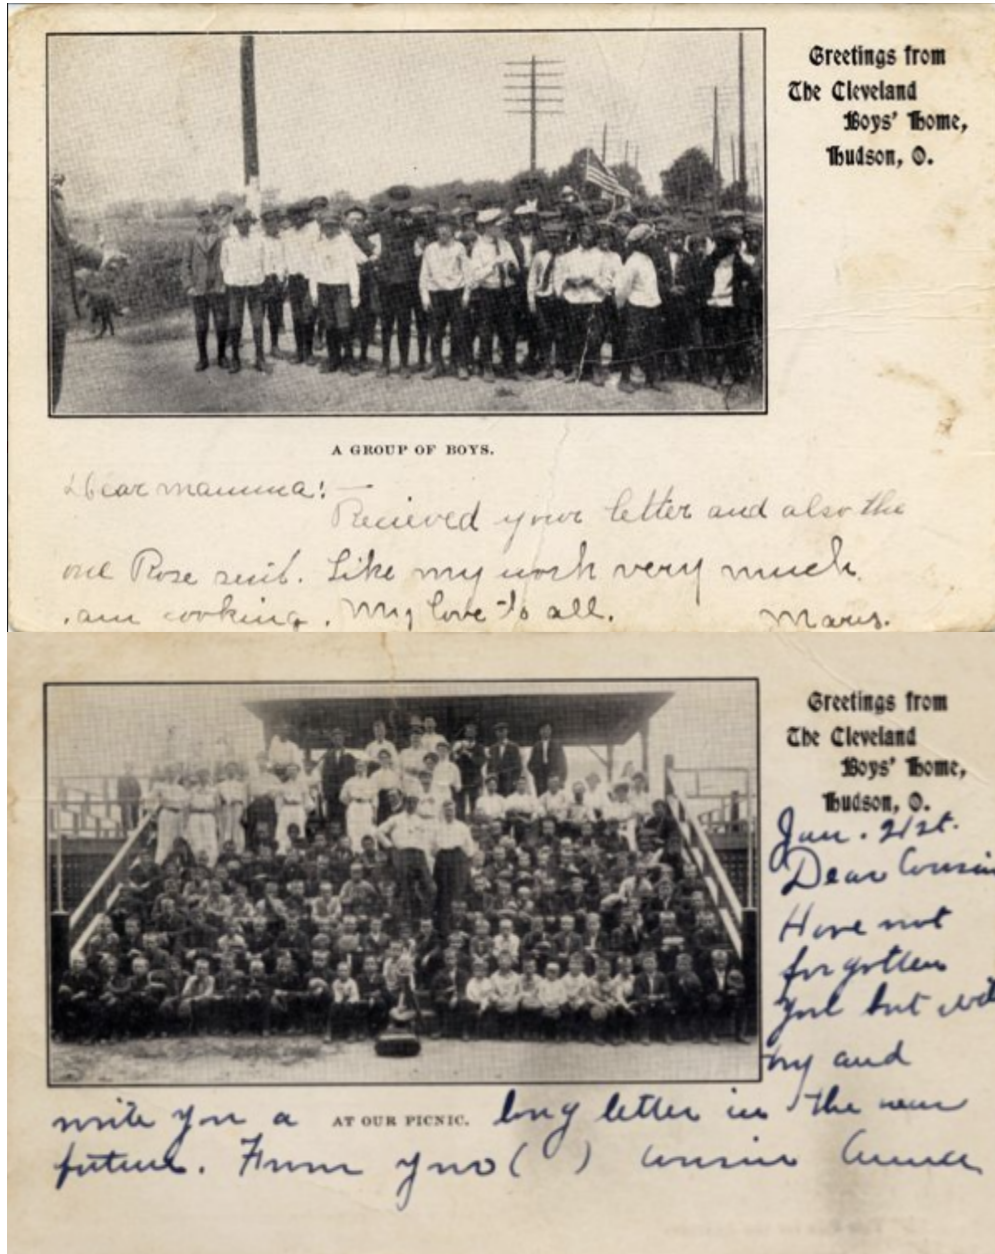 Greetings from
The Cleveland
Boys' Home,
Hudson, O.
A GROUP OF BOYS.
Dear mamma! —
Recieved your letter and also the
one Rose sent. Like my work very much.
am cooking. My love to all. 
Greetings from
The Cleveland
Boys' Home,
Hudson, O.
Jan. 21st.
Dear Cousin
Have not
forgotten
you but will
try and
write you a AT OUR PICNIC. long letter in the near
future. From your ( ) cousin